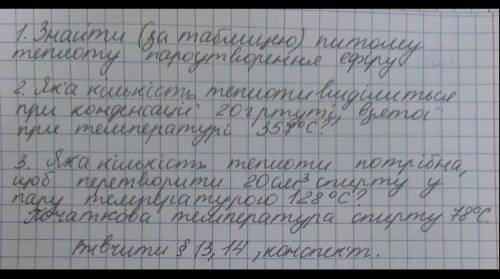 1. Знайти (за таблицею) питому
теплоту пароутворення ефіру
2. Яка кількість теплоти виділиться
при конденсації 20 г ртуті, взятої
при температурі 357°C?
3. Яка кількість теплоти потрібна,
щоб перетворити 20 см³ спирту у
пару температурою 128°C?
Початкова температура спирту 78°C.
Вивчити § 13, 14, конспект.